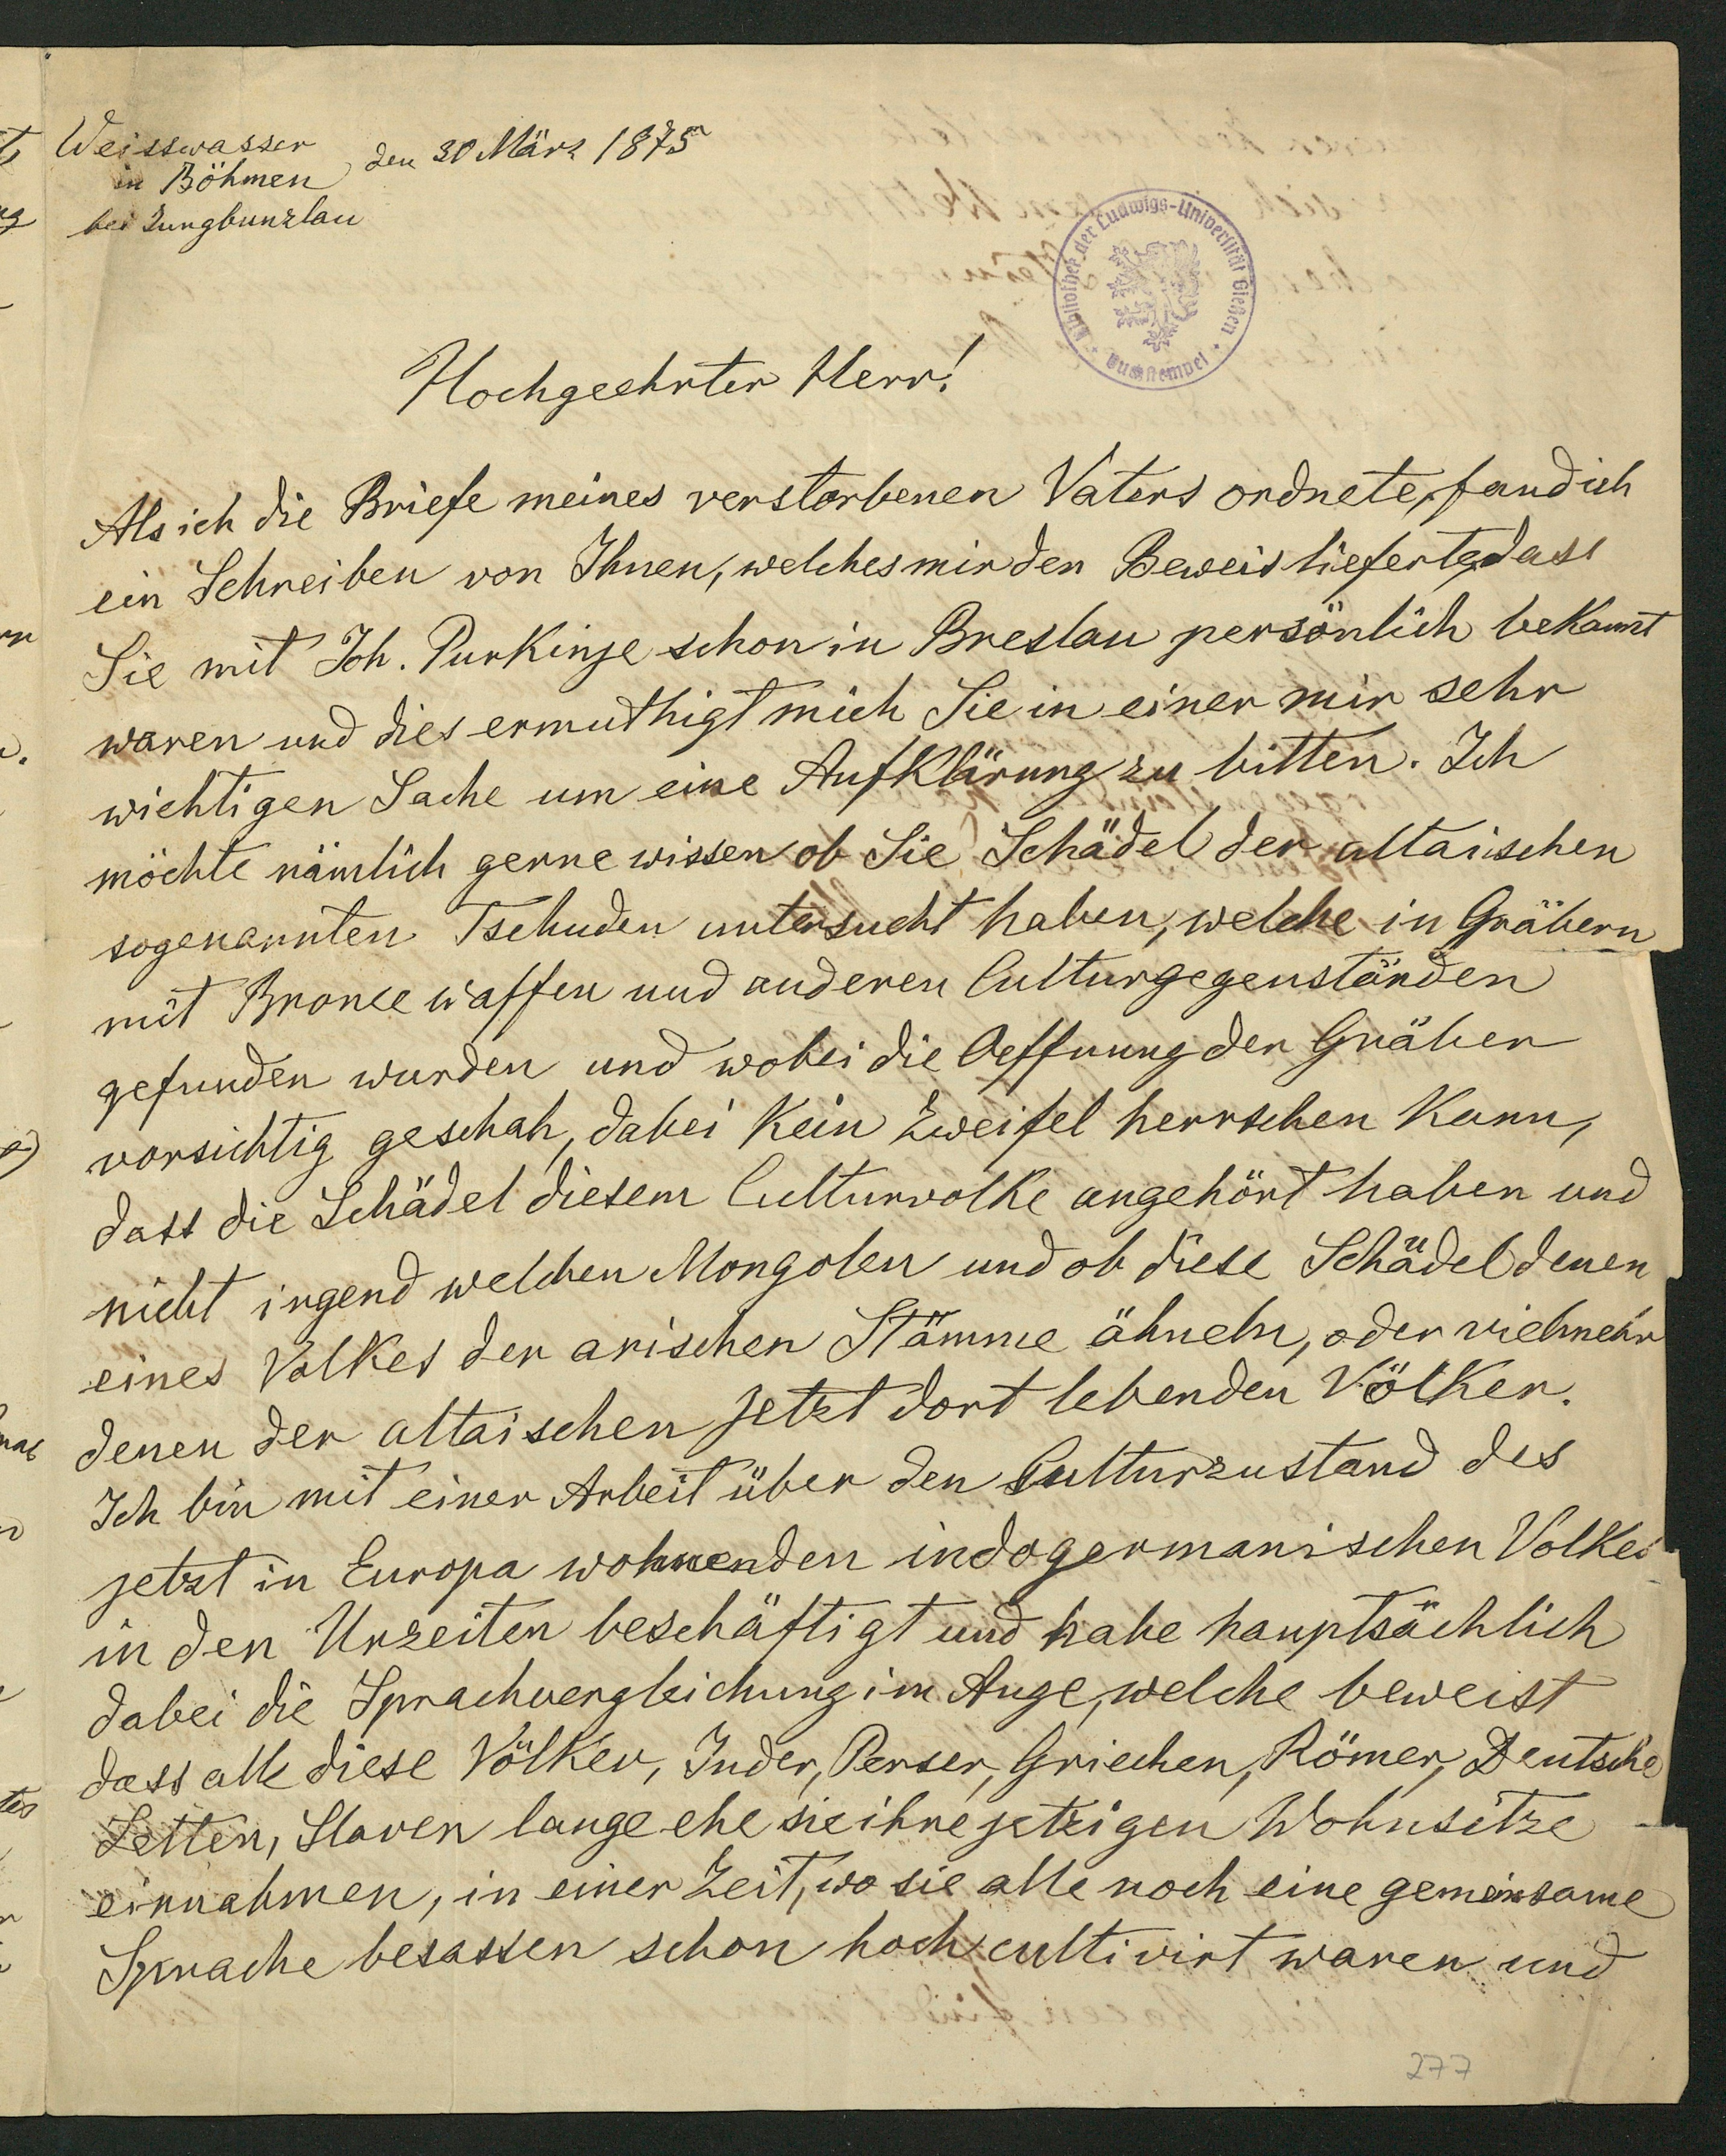 Weisswasser
in Böhmen den 30 März 1875
bei Jungbunzlau
Bibliothek der Ludwigs-Universität Gießen
Buchstempel
Hochgeehrter Herr!
Als ich die Briefe meines verstorbenen Vaters ordnete, fand ich
ein Schreiben von Ihnen, welches mir den Beweis lieferte, dass
Sie mit Joh. Purkinje schon in Breslau persönlich bekannt
waren und dies ermuthigt mich Sie in einer mir sehr
wichtigen Sache um eine Aufklärung zu bitten. Ich
möchte nämlich gerne wissen ob Sie Schädel der altaischen
sogenannten Tschuden untersucht haben, welche in Gräbern
mit Broncewaffen und anderen Culturgegenständen
gefunden wurden und wobei die Oeffnung der Gräber
vorsichtig geschah, dabei kein Zweifel herrschen kann,
dass die Schädel diesem Culturvolke angehört haben und
nicht irgend welchen Mongolen und ob diese Schädel denen
eines Volkes der arischen Stämme ähneln, oder vielmehr
denen der altaischen jetzt dort lebenden Völker.
Ich bin mit einer Arbeit über den Culturzustand des
jetzt in Europa wohnenden indogermanischen Volkes
in den Urzeiten beschäftigt und habe hauptsächlich
dabei die Sprachvergleichung im Auge, welche beweist
dass alle diese Völker, Inder, Perser, Griechen, Römer, Deutsche
Letten, Slaven lange ehe sie ihre jetzigen Wohnsitze
einnahmen, in einer Zeit, wo sie alle noch eine gemeinsame
Sprache besassen schon hoch cultivirt waren und
277